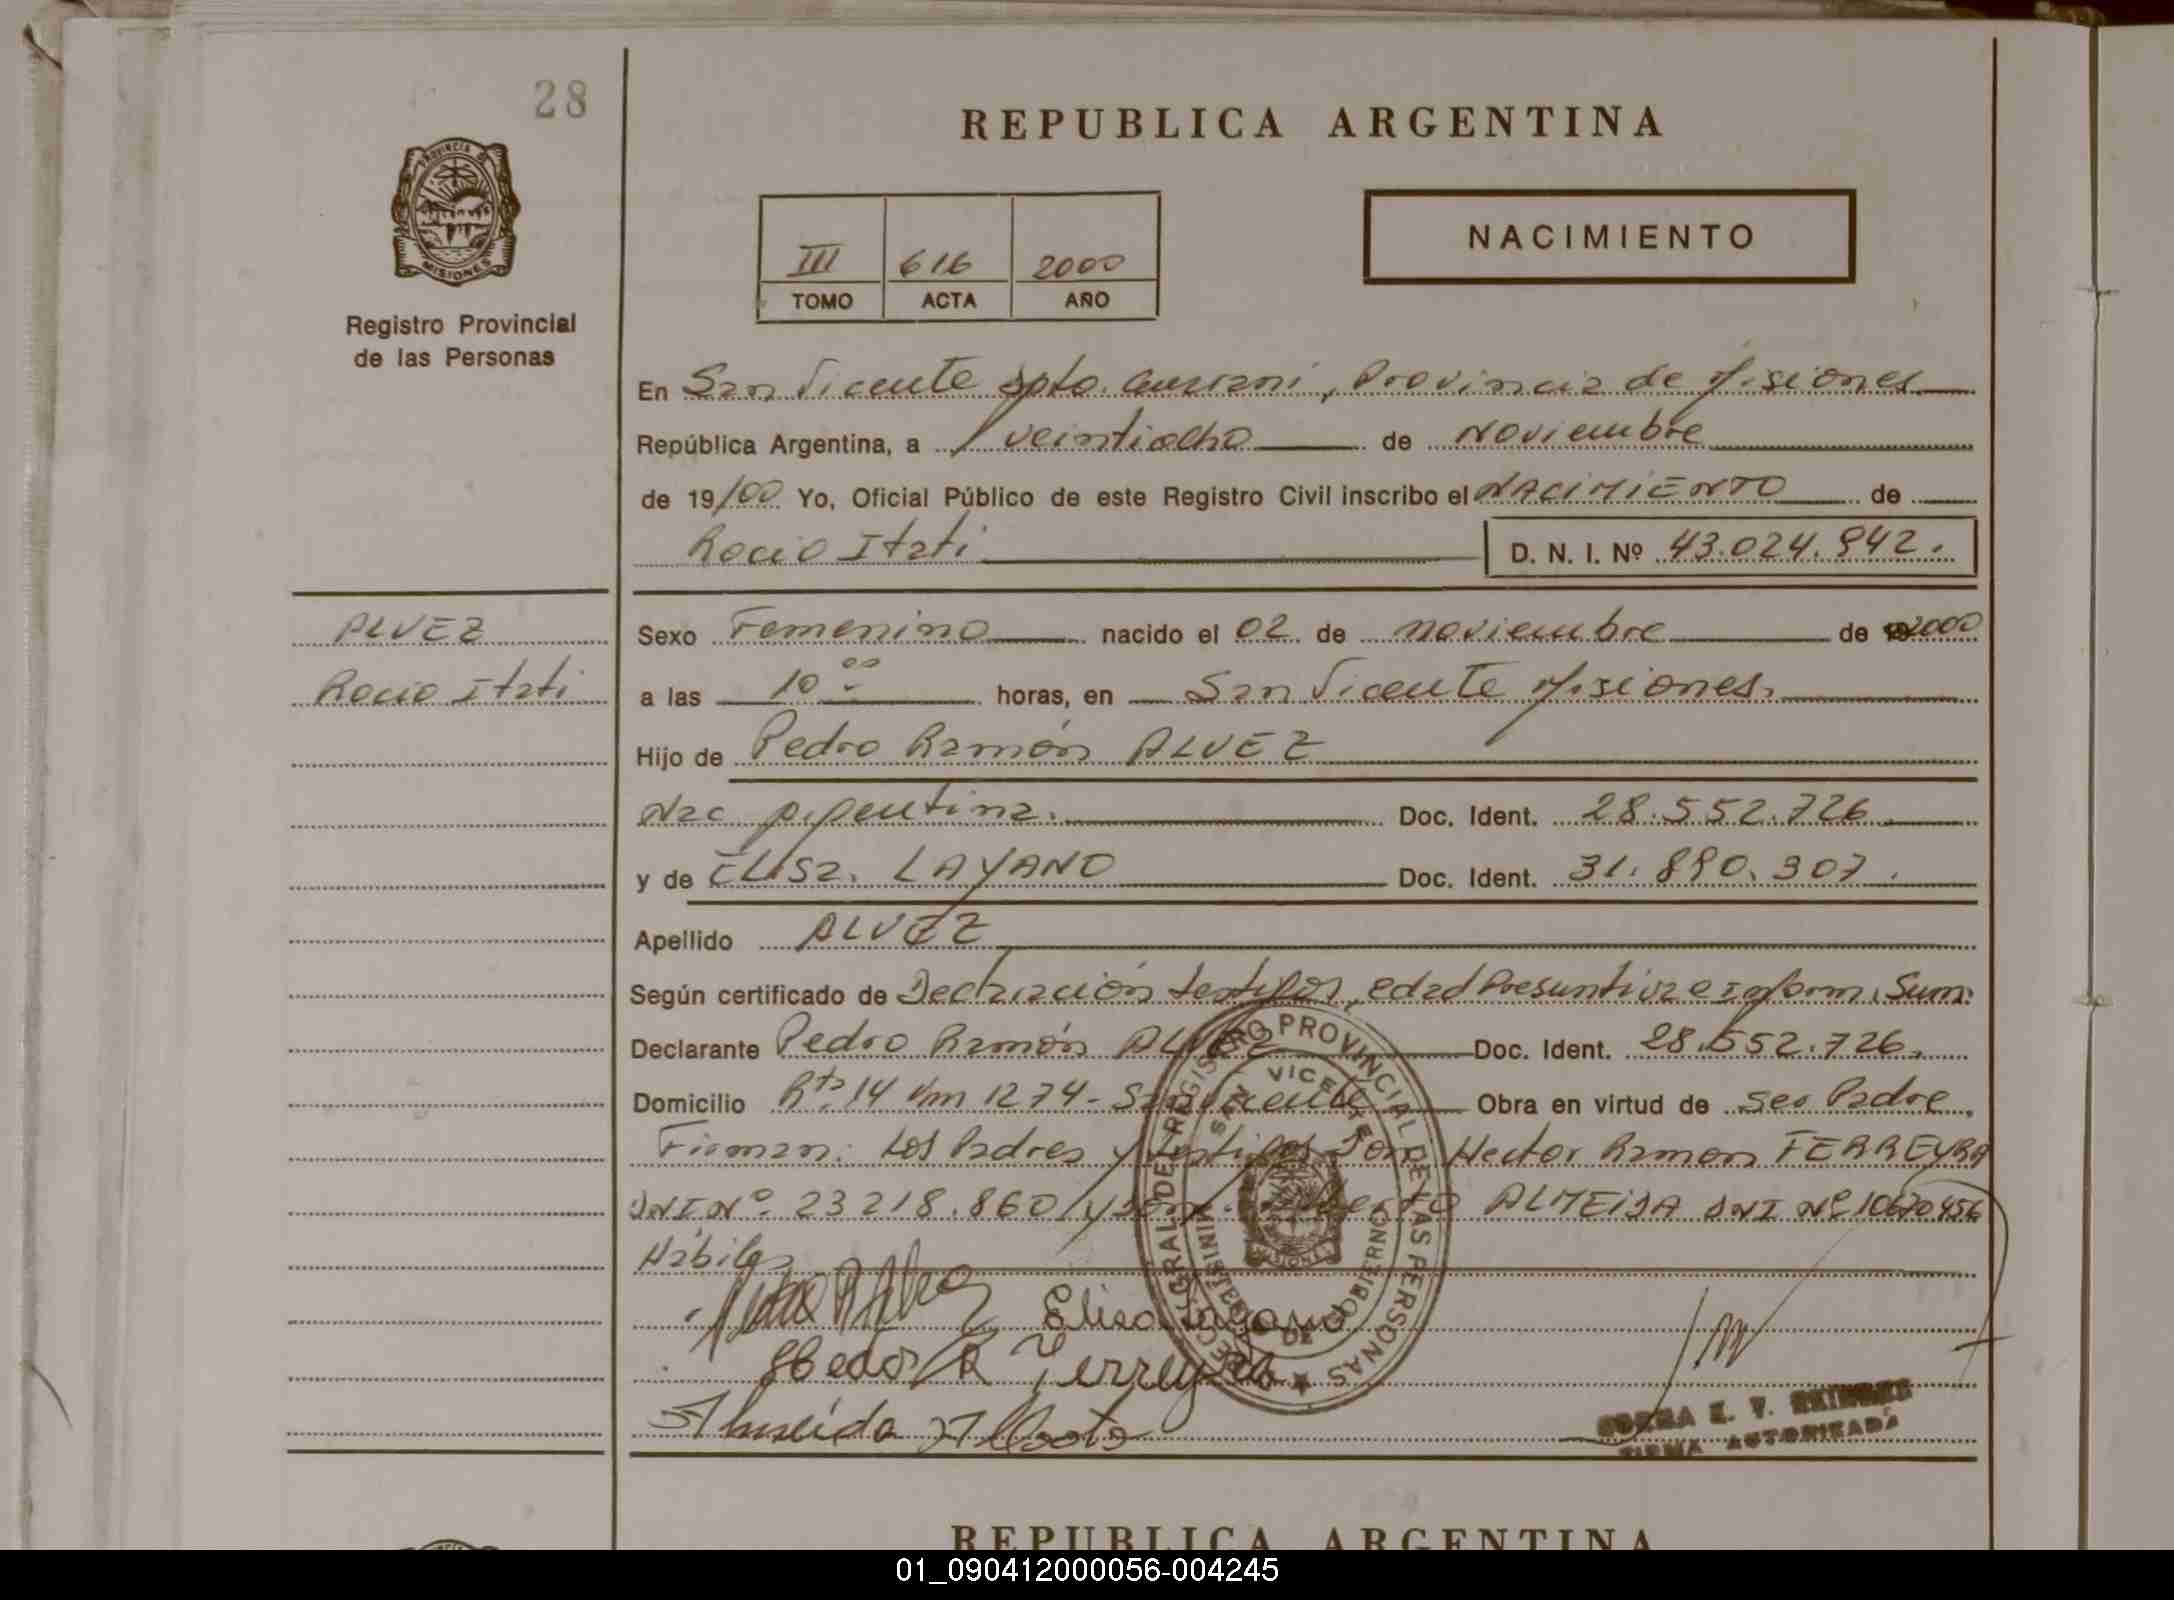 28
REPUBLICA ARGENTINA
PROVINCIA DE
MISIONES
Registro Provincial
de las Personas
III 616 2000
TOMO ACTA AÑO
NACIMIENTO
En San Vicente Dpto. Guarani, Provincia de Misiones
República Argentina, a veintiocho de Noviembre
de 19/00 Yo, Oficial Público de este Registro Civil inscribo el NACIMIENTO de
Rocio Itati D. N. I. Nº 43.024.942.
ALVEZ
Rocio Itati
Sexo Femenino nacido el 02 de noviembre de 2000
a las 10 00 horas, en San Vicente Misiones.
Hijo de Pedro Ramón ALVEZ
Nac Argentina. Doc. Ident. 28.552.726
y de ELisa. LAYANO Doc. Ident. 31.890.307.
Apellido ALVEZ
Según certificado de Declaración testigos, edad Presuntiva e Inform. Sum.
Declarante Pedro Ramón ALVEZ Doc. Ident. 28.552.726.
Domicilio Rta. 14 Km 1274 - San Vicente Obra en virtud de ser Padre.
Firman: Los Padres y testigos Don Hector Ramon FERREYRA
DNI Nº. 23 218.860 y Don ALMEIDA DNI Nº 10670456
Hábiles
Elisa Layano
Hector R Ferreyra
Almeida
DIRECCION GENERAL DE REGISTRO PROVINCIAL DE LAS PERSONAS
SAN VICENTE
MINISTERIO DE GOBIERNO
MISIONES
FIRMA AUTORIZADA
REPUBLICA ARGENTINA
01_090412000056-004245